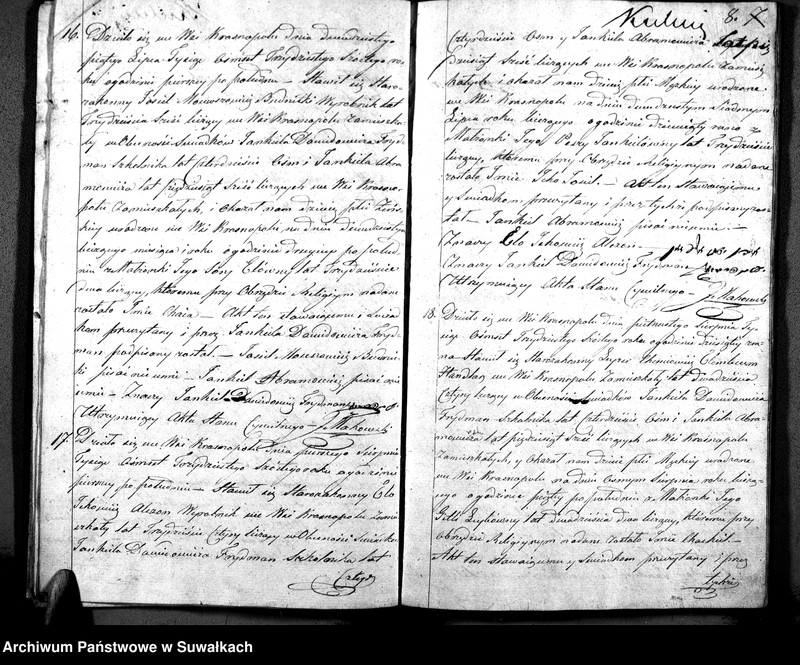 16. Działo się we Wsi Krasnopolu dnia dwudziestego
piątego Lipca Tysiąc Ośmset Trzydziestego Szóstego ro-
ku o godzinie pierwszy po południu – Stawił się Staro-
zakonny Josiel Wyrobnik lat
Trzydzieścia Sześć liczący we Wsi Krasnopolu Zamieszka-
ły w Obecności Świadków Jankiela Dawidowicza Fryd-
man Szkolnika lat Czterdzieście Ośm i Jankiela Abra-
mowicza lat pięćdziesiąt Sześć liczących we Wsi Krasno-
polu Zamieszkałych, i okazał nam dziecię płci Żeńs-
kiey urodzone we Wsi Krasnopolu na dniu dwudziestym
bieżącego miesiąca i roku o godzinie drugiey po połud-
niu z Małżonki Jego lat Trzydzieście
dwa liczący, któremu przy Obrzędzie Religijnym nadane
zostało Imie Chaia – Akt ten stawaiącemu i Świa-
kom przeczytany i przez Jankiela Dawidowicza Fryd-
man podpisany został. –
ki pisać nieumie – Jankiel Abramowicz pisać nie
umie – Znaczy Jankiel Dawidowicz Frydman
Utrzymuiący Akta Stanu Cywilnego J. Makowski
17. Działo się we Wsi Krasnopolu Dnia pierwszego Sierpnia
Tysiąc Ośmset Trzydziestego Szóstego roku o godzinie
pierwszy po południu – Stawił się Starozakonny Elo
Jckowicz Wyrobnik we Wsi Krasnopolu Zamie-
szkały lat Trzydzieście Cztyry liczący w Obecności Świadków
Jankiela Dawidowicza Frydman Szkolnika lat
Cztyr
Kukuij 8. 7
Cztyrdzieście Ośm y Jankiela Abramowicza lat pię
dziesiąt Sześć liczących we Wsi Krasnopolu Zamiesz
kałych i okazał nam dziecię płci Męskiey urodzone
we Wsi Krasnopolu na dniu dwudziestym Siodmym
Lipca roku bieżącego o godzinie dziewiąty rano z
Małżonki Jego Peszy Jankielowny lat Trzydzieście
liczący, któremu przy Obrzędzie Religijnym nadane
zostało Imie Josiel. – Akt ten stawaiącemu
y Świadkom przeczytany i przez tychże podpisany zos-
tał – Jankiel Abramowicz pisać nieumie –
Znaczy Elo Jckowicz
Znaczy Jankiel Dawidowicz Frydman
Utrzymuiący Akta Stanu Cywilnego – J. Makowski
18. Działo się we Wsi Krasnopolu dnia pierwszego Sierpnia Ty-
siąc Ośmset Trzydziestego Szóstego roku o godzinie dziesiąty ra-
no – Stawił się Starozakonny
Handlarz we Wsi Krasnopolu Zamieszkały lat dwadzieścia
Cztyry liczący w Obecności Świadków Jankiela Dawidowicza
Frydman Szkolnika lat Czterdzieście Ośm i Jankiela Abra-
mowicza lat pięćdziesiąt Sześć liczących w Wsi Krasnopolu
Zamieszkałych, y Okazał nam dziecię płci Męskiey urodzone
we Wsi Krasnopolu na dniu Ósmym Sierpnia roku bieżą-
cego o godzinie piąty po południu z Małżonki Jego
lat dwadzieścia dwa liczący, któremu przy
Obrzędzie Religijnym nadane zostało Imie
Akt ten stawaiącemu y Świadkom przeczytany i przez
tychże
Archiwum Państwowe w Suwałkach